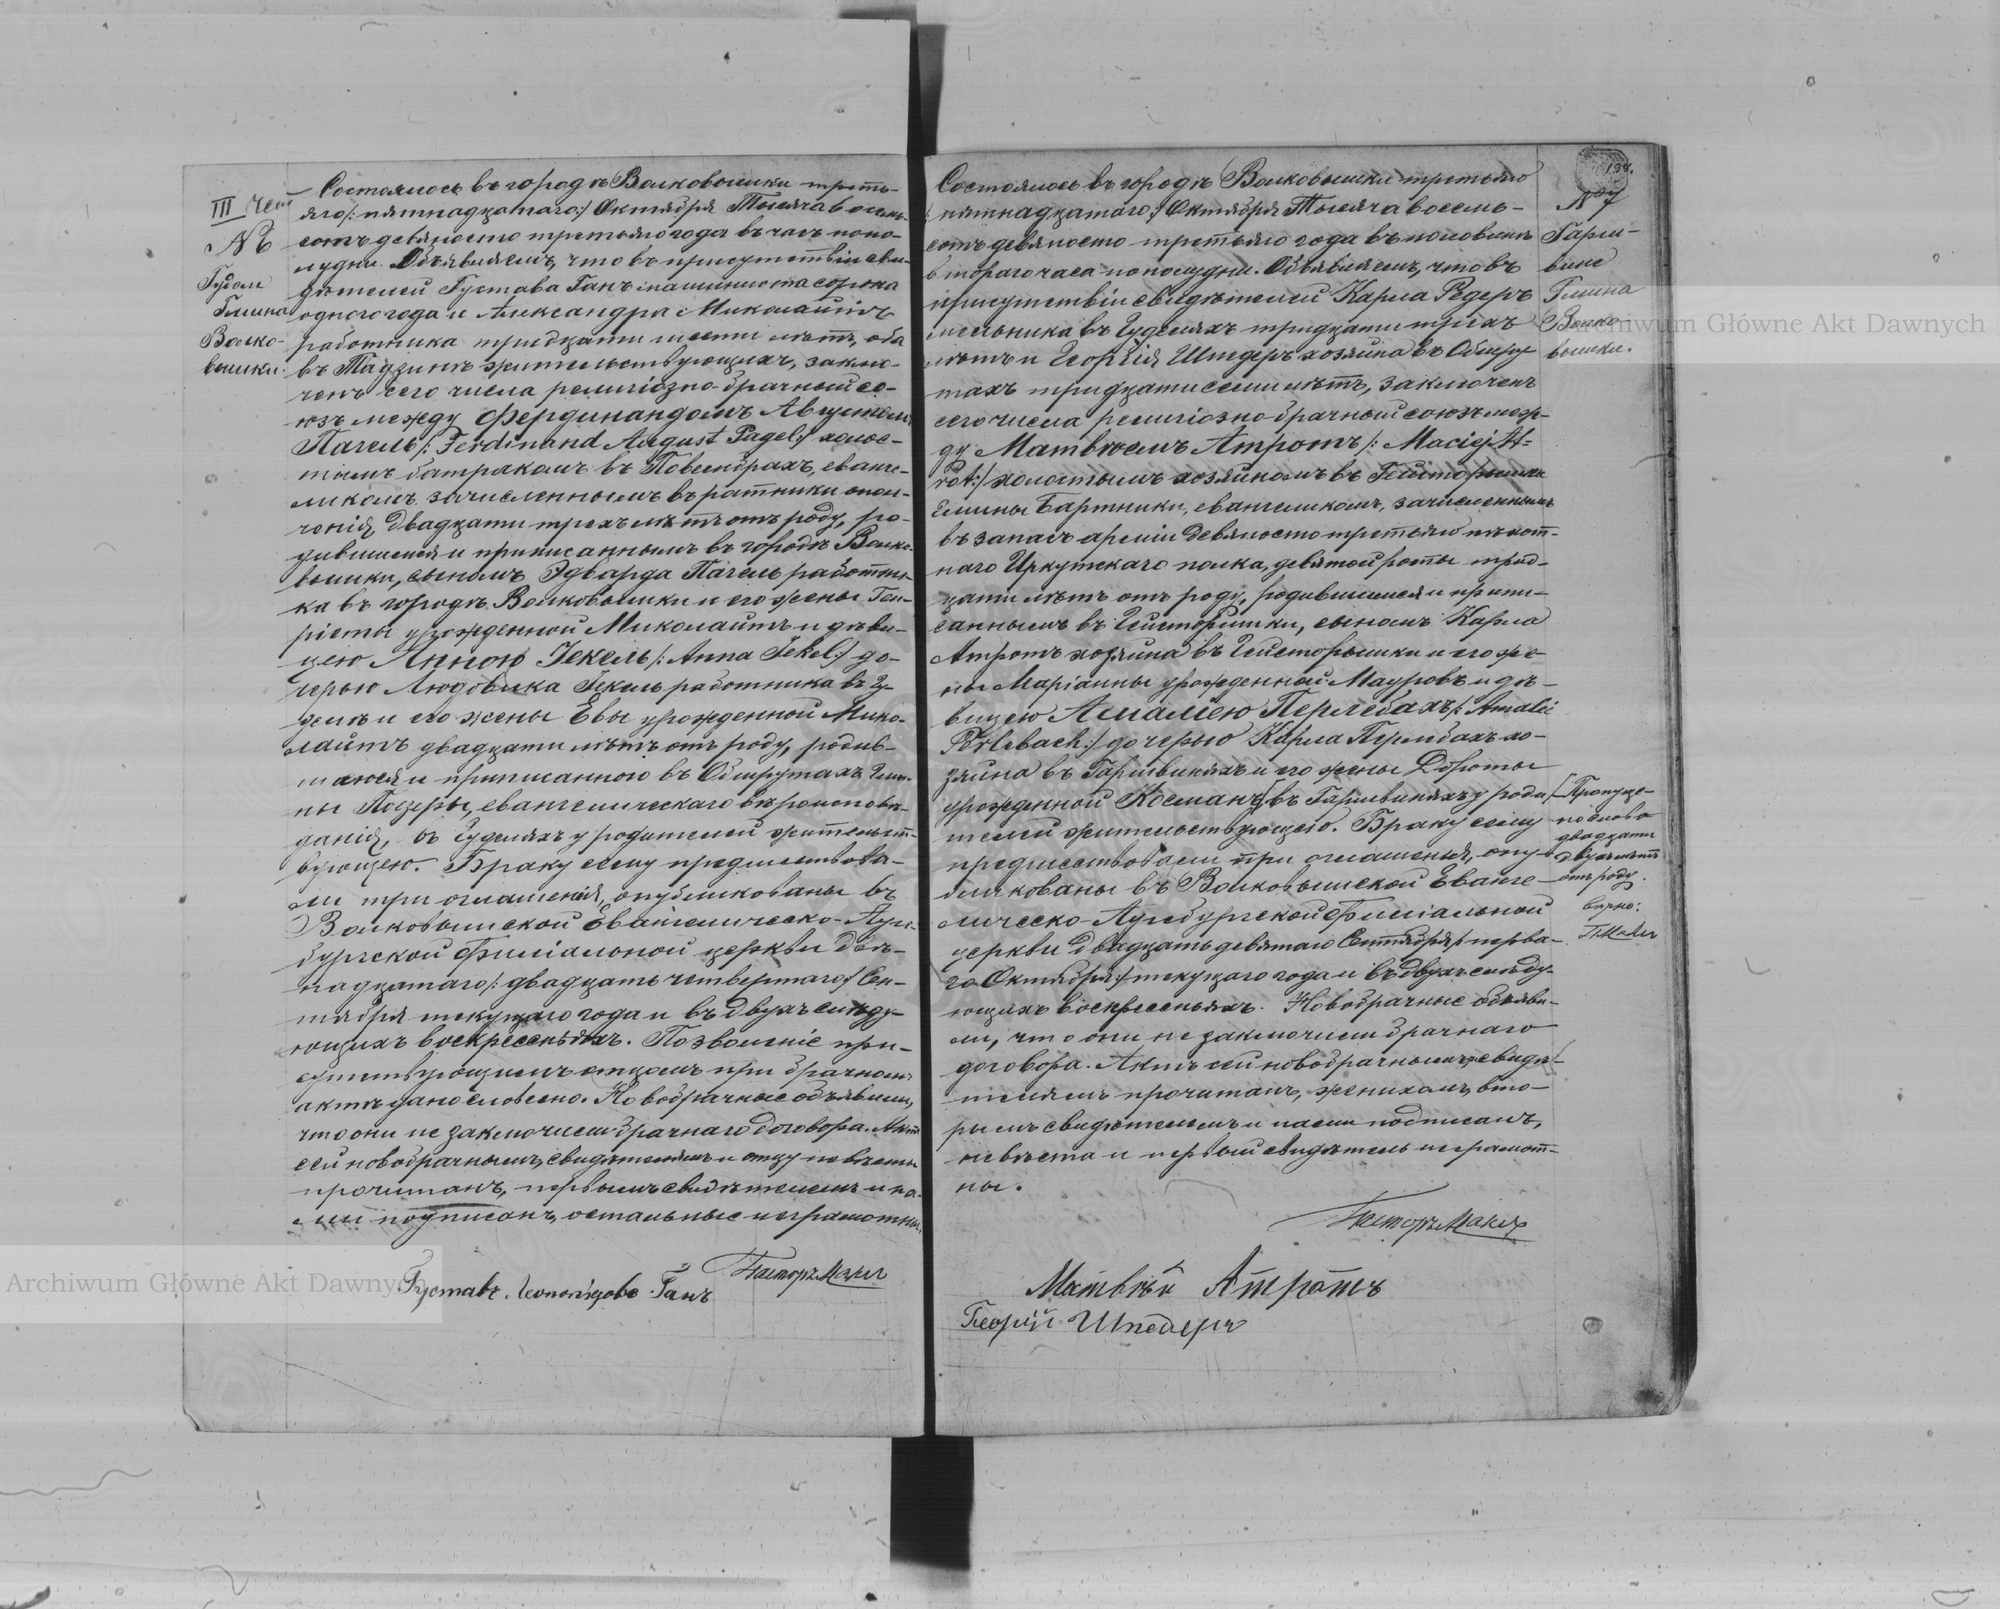 III чет
№ 6
Гудели
Гмина
Волко-
вышки.
Состоялось въ городѣ Волковышки треть-
яго /: пятнадцатаго :/ Октября Тысяча восемь-
сотъ девяносто третьяго года въ часъ попо-
лудни. Объявляемъ, что въ присутствіи сви-
дѣтелей Густава Ганъ машиниста сорока
одного года и Александра Миколайтъ
работника тридцати шести лѣтъ, оба
въ жительствующихъ, заклю-
ченъ сего числа религіозно-брачный со-
юзъ между Фердинандомъ Августомъ
Пагель /: Ferdinand August Pagel :/ холос-
тымъ батракомъ въ Повембрахъ, еванге-
ликомъ, зачисленнымъ въ ратники опол-
ченія, двадцати трехъ лѣтъ отъ роду, ро-
дившимся и приписаннымъ въ городѣ Волко-
вышки, сыномъ Эдварда Пагель работни-
ка въ городѣ Волковышки и его жены Ген-
ріеты урожденной Миколайтъ и дѣви-
цею Анною Іекель /: Anna Jekel :/ до-
черью Людовика Іекель работника въ Гу-
деляхъ и его жены Евы урожденной Мико-
лайтъ двадцати лѣтъ отъ роду, родив-
шаюся и приписанною въ Обшрутахъ Гми-
ны Поеры, евангелическаго вѣроисповѣ-
данія, въ Гуделяхъ у родителей жительст-
вующею. Браку сему предшествова-
ли три оглашенія, опубликованы въ
Волковышской Евангелическо-Аугс-
бургской Филіальной церкви двѣ-
надцатаго /: двадцать четвертаго :/ Сен-
тября текущаго года и въ двухъ слѣду-
ющихъ воскресеньяхъ. Позволеніе при-
сутствующимъ отцомъ при брачномъ
актѣ дано словесно. Новобрачные объявили,
что они не заключили брачнаго договора. Актъ
сей новобрачнымъ, свидѣтелямъ и отцу невѣсты
прочитанъ, первымъ свидѣтелемъ и на-
ми подписанъ, остальные неграмотны.
Пасторъ
Густавъ Леополдовъ Ганъ
198.
№ 7
Гарш-
вине
Гмина
Волко-
вышки.
Состоялось въ городѣ Волковышки третьяго
/: пятнадцатаго :/ Октября Тысяча восемь-
сотъ девяносто третьяго года въ половинѣ
втораго часа пополудни. Объявляемъ, что въ
присутствіи свидѣтелей Карла Редеръ
мельника въ Гуделяхъ тридцати трехъ
лѣтъ и Георгія Шпедеръ хозяина въ Обшру-
тахъ тридцати семи лѣтъ, заключенъ
сего числа религіозно-брачный союзъ меж-
ду Матвѣемъ Атротъ /: Maciej At-
rot :/ холостымъ хозяиномъ въ Гейсторышки
Гмины Бартники, евангеликомъ, зачисленнымъ
въ запасъ арміи девяносто третьяго пѣхот-
наго Иркутскаго полка, девятой роты трид-
цати лѣтъ отъ роду, родившимся и припи-
саннымъ въ Гейсторишки, сыномъ Карла
Атротъ хозяина въ Гейсторышки и его же-
ны Маріанны урожденной Мауровъ и дѣ-
вицею Амаліею Перлебахъ /: Amalie
Perlebach :/ дочерью Карла Перлебахъ хо-
зяина въ Гаршвиняхъ и его жены Дороты
урожденной Косманъ [ въ Гаршвиняхъ у роди-
телей жительствующею. Браку сему
предшествовали три оглашенья, опу-
бликованы въ Волковышской Еванге-
лическо-Аугсбургской Филіальной
церкви двадцать девятаго Сентября /: перва-
го Октября :/ текущаго года и въ двухъ слѣду-
ющихъ воскресеньяхъ. Новобрачные объяви-
ли, что они не заключили брачнаго
договора. Актъ сей новобрачнымъ, свидѣ-
телямъ прочитанъ, женихомъ, вто-
рымъ свидѣтелемъ и нами подписанъ,
невѣста и первый свидѣтель неграмот-
ны.
[ Пропуще-
но слово
двадцати
двухъ лѣтъ
отъ роду.
Вѣрно:
Пасторъ
Матвѣй Атротъ
Георгій Шпедеръ
Archiwum Główne Akt Dawnych
Archiwum Główne Akt Dawnych